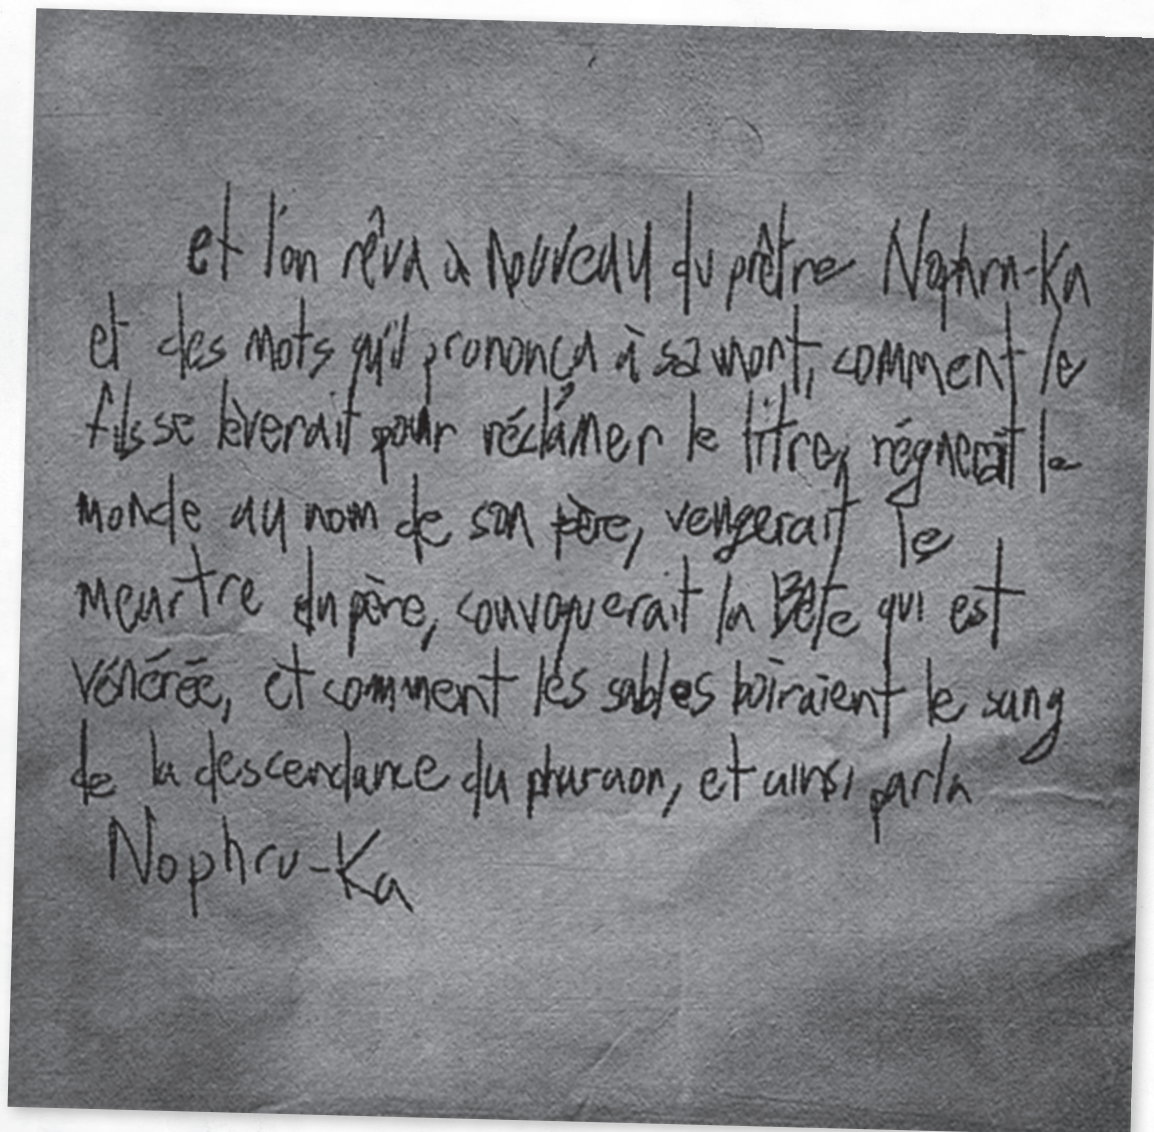 et l'on rêva à nouveau du prêtre Nophru-Ka
et des mots qu'il prononça à sa mort, comment le
fils se lèverait pour réclamer le titre, régnerait le
monde au nom de son père, vengerait le
meurtre du père, convoquerait la Bête qui est
vénérée, et comment les sables boiraient le sang
de la descendance du pharaon, et ainsi parla
Nophru-Ka